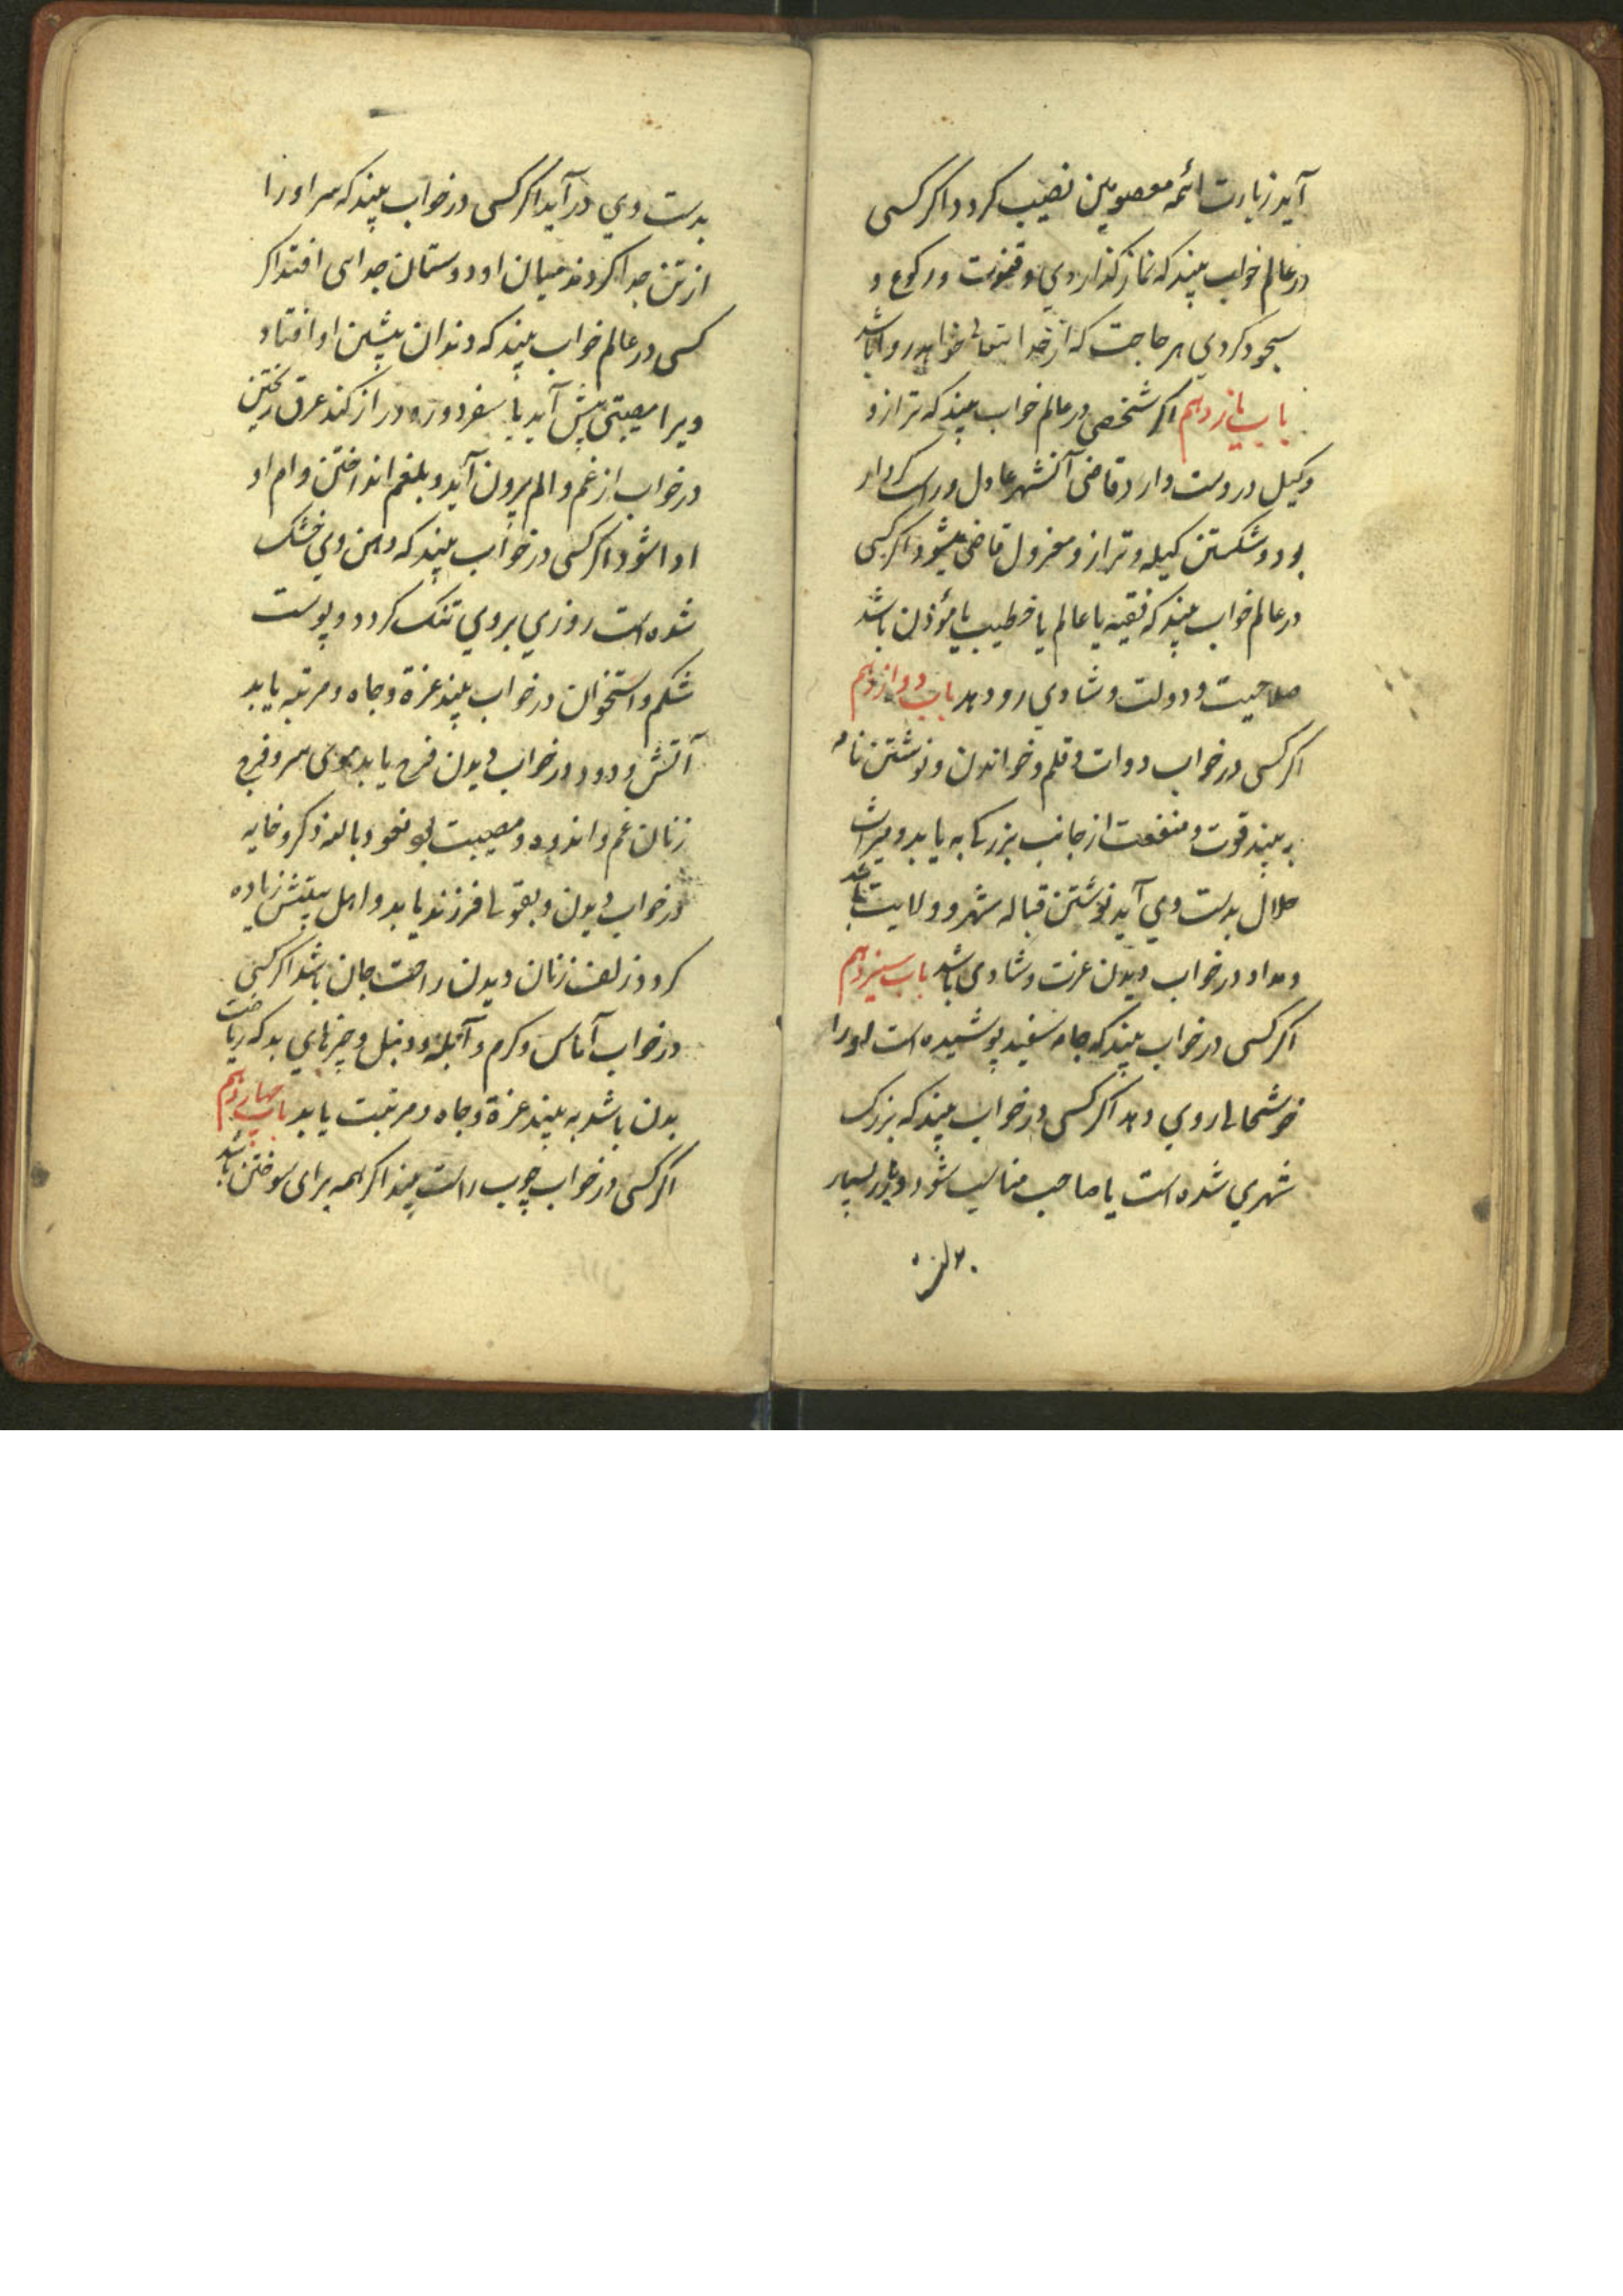 آید زیارت ائمه معصومین نصیب کردد اکر کسی
در عالم خواب بیند که نماز کذاردی و قنوت و رکوع و
سجود کردی هر حاجت که از خدا ایتعالی خواهد روا باشد
باب یازدهم اکر شخصی در عالم خواب بیند که ترازو
وکیل در دست دارد قاضی آنشهر عادل و راست کردار
بود و شکستن کیله و ترازو معزول قاضی میشود اکر کسی
در عالم خواب بیند که فقیه یا عالم یا خطیب یا مؤذن باشد
صلاحیت و دولت و شادی رو دهد باب دوازدهم
اکر کسی در خواب دوات و قلم و خواندن و نوشتن نامه
به بیند قوت و منفعت از جانب بزرکی به یابد و میراث
حلال بدست وی آید نوشتن قباله شهر و ولایت باشد
و مداد در خواب دیدن عزت و شادی باشد باب سیزدهم
اکر کسی در خواب بیند که جامه سفید پوشیده است او را
خوشحالی روی دهد اکر کسی در خواب بیند که بزرک
شهری شده است یا صاحب مناسب شود بسیار
بدست وی در آید اکر کسی در خواب بیند که سر او را
از تن جدا کردند میان او و دوستان جدایی افتد اکر
کسی در عالم خواب بیند که دندان پیشین او افتاد
ویرا مصیبتی پیش آید یا سفر دور و دراز کند عرق ریختن
در خواب از غم و الم بیرون آید و بلغم انداختن وام او
ادا شود اکر کسی در خواب بیند که دهن وی خشک
شده است روزی بروی تنک کردد و پوست
شکم و استخوان در خواب بیند عزة و جاه و مرتبه یابد
آتش و دود در خواب دیدن فرح یابد موی سر و فرج
زنان غم و اندوه و مصیبت بود نعوذ بالله ذکر و خایه
در خواب دیدن و بقولی فرزند یابد و اهل بیتش زیاده
کردد زلف زنان دیدن راحت جان باشد اکر کسی
در خواب آماس و کرم و آبله و دنبل و چیزهای بد که
بدن باشد به بیند عزة و جاه و مرتبت یابد باب چهاردهم
اکر کسی در خواب چوب راست بیند اکر همه برای سوختن باشد